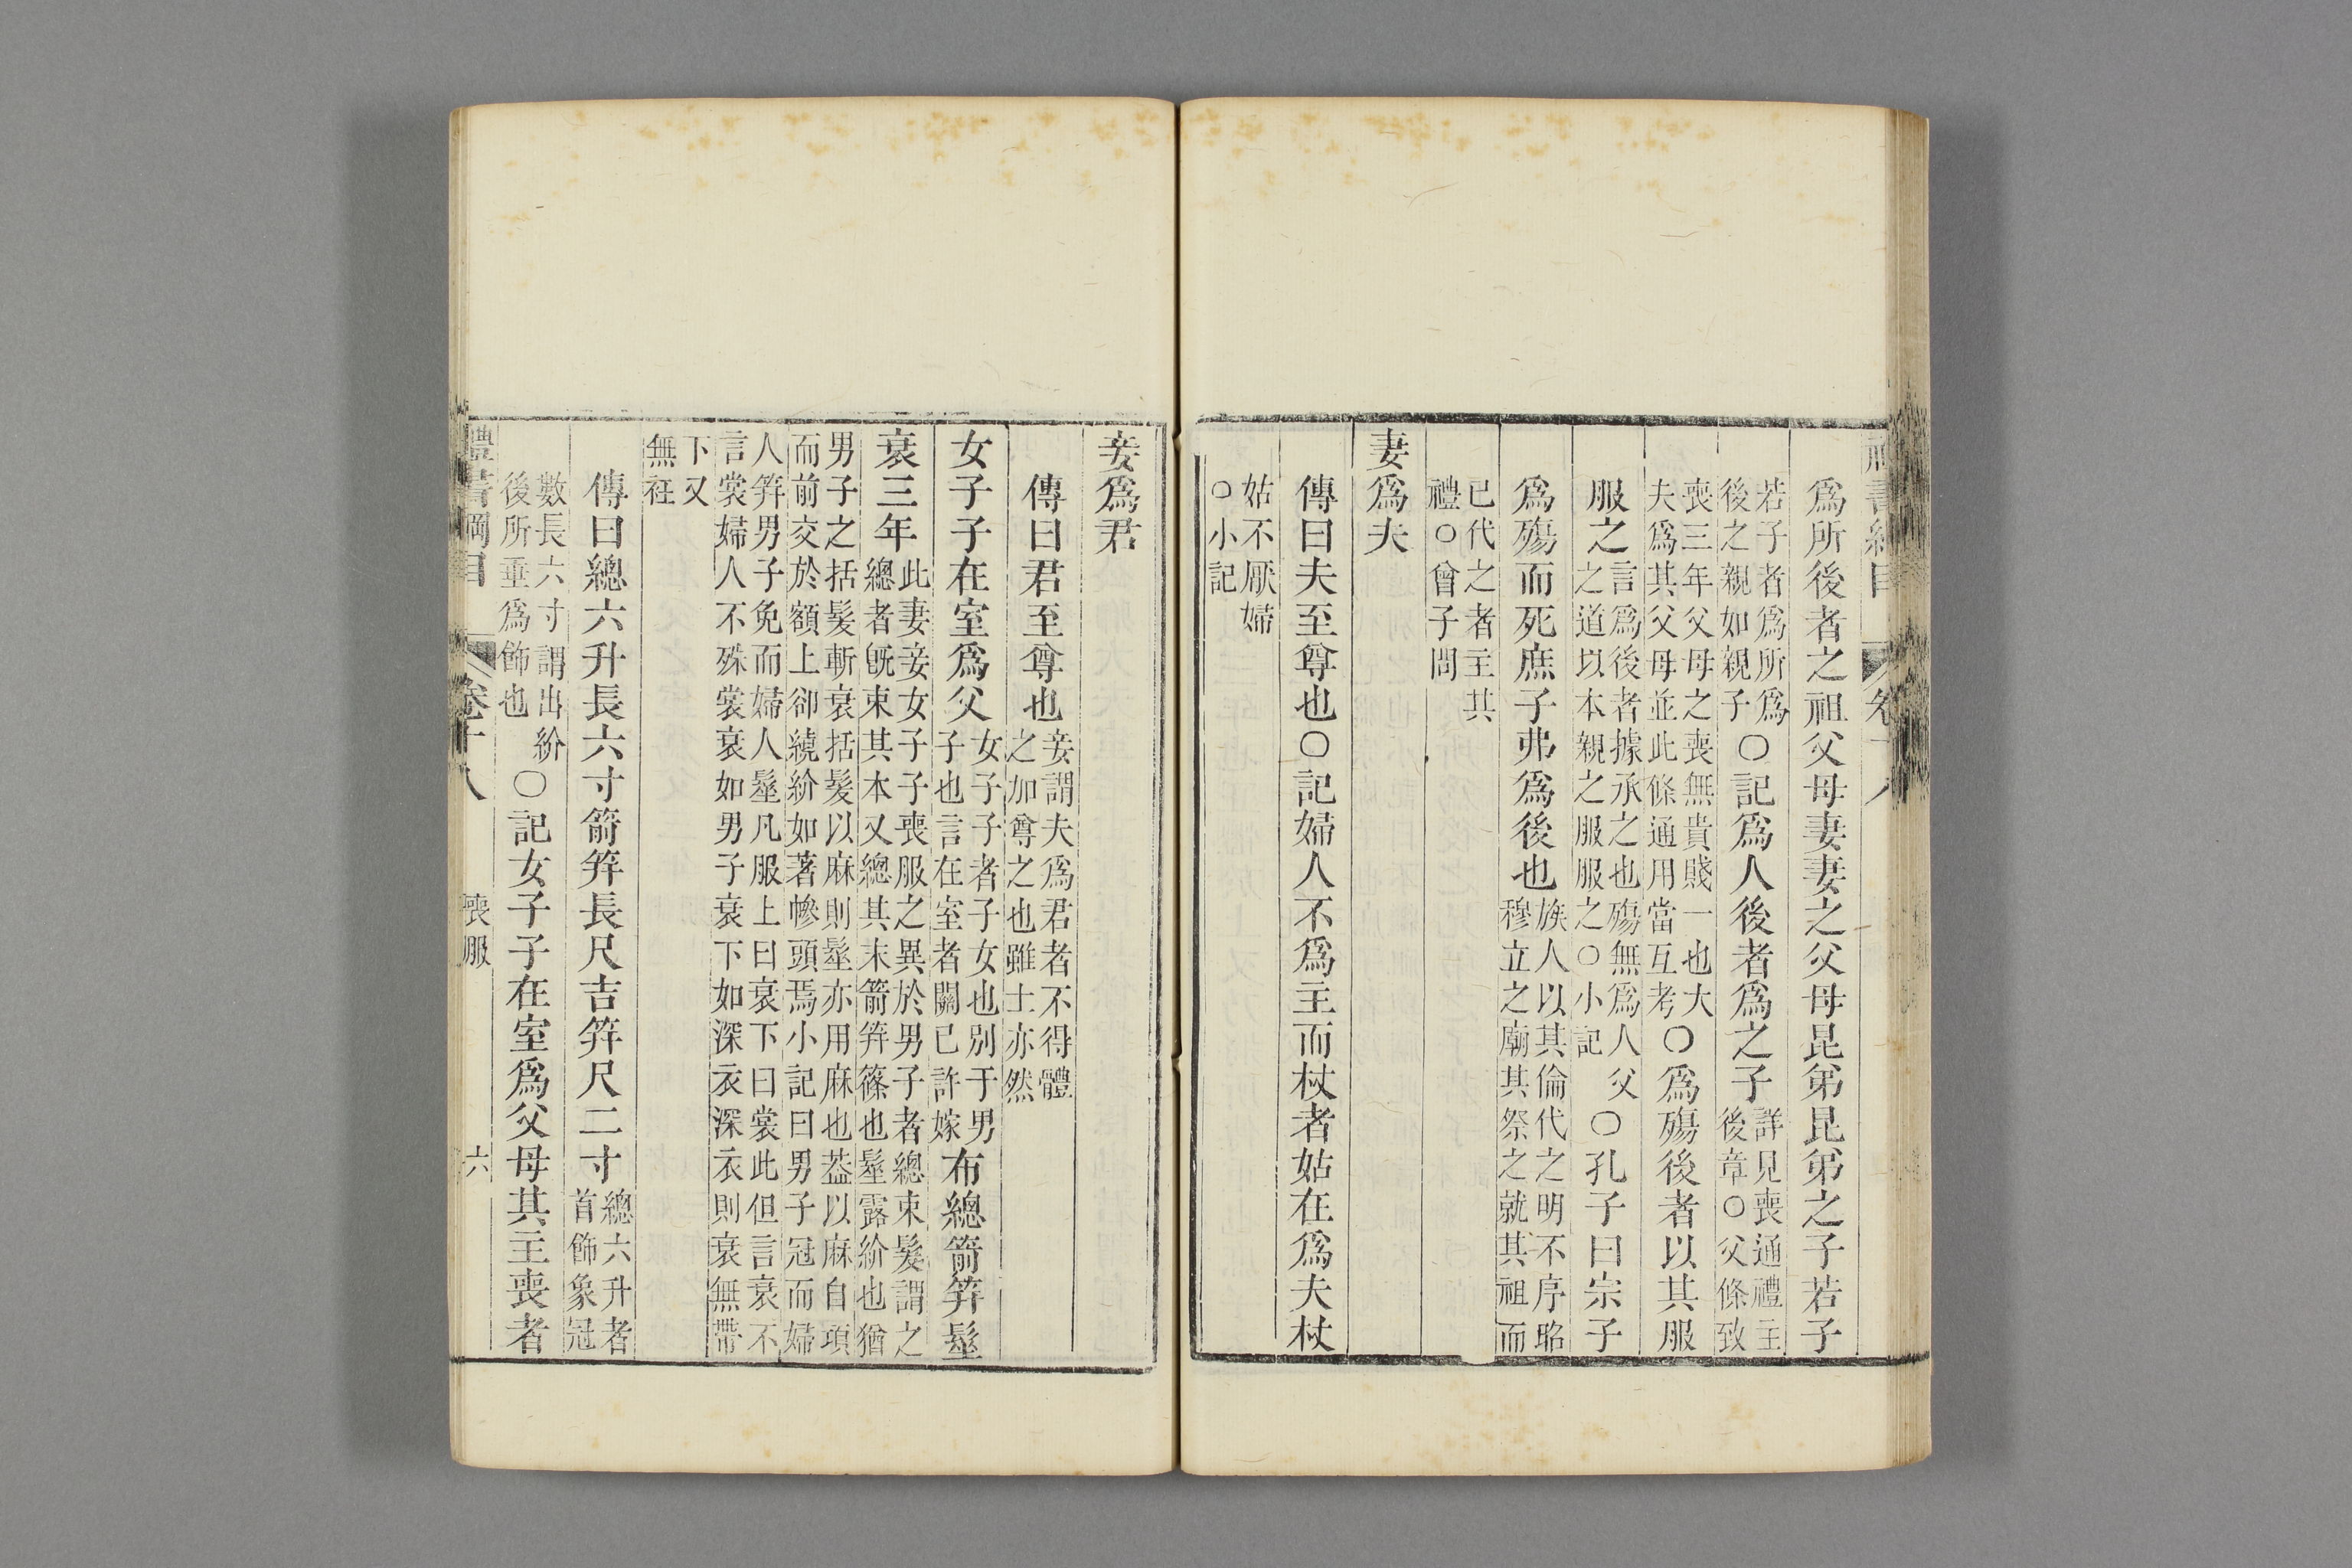 爲所後者之祖父母妻妻之父母昆弟昆弟之子若子
若子者爲所爲後之親如親子〇記爲人後者爲之子詳見喪通禮主後章〇父條致
喪三年父母之喪無貴賤一也大夫爲其父母並此條通用當互考〇爲殤後者以其服
服之言爲後者據承之也殤無爲人父之道以本親之服服之〇小記〇孔子曰宗子
爲殤而死庶子弗爲後也族人以其倫代之明不序昭穆立之廟其祭之就其祖而
已代之者主其禮〇曾子問
妻爲夫
傳曰夫至尊也〇記婦人不爲主而杖者姑在爲夫杖
姑不厭婦〇小記
妾爲君
傳曰君至尊也妾謂夫爲君者不得體之加尊之也雖士亦然
女子子在室爲父女子子者子女也別于男子也言在室者關已許嫁布總箭筓髽
衰三年此妻妾女子子喪服之異於男子者總束髮謂之總者旣束其本又總其末箭筓篠也髽露紒也猶
男子之括髮斬衰括髮以麻則髽亦用麻也葢以麻自項而前交於額上卻繞紒如著幓頭焉小記曰男子冠而婦
人筓男子免而婦人髽凡服上曰衰下曰裳此但言衰不言裳婦人不殊裳衰如男子衰下如深衣深衣則衰無帶
下又無衽
傳曰總六升長六寸箭筓長尺吉筓尺二寸總六升者首飾象冠
數長六寸謂出紒後所垂爲飾也〇記女子子在室爲父母其主喪者
禮書綱目 卷十八 喪服 六